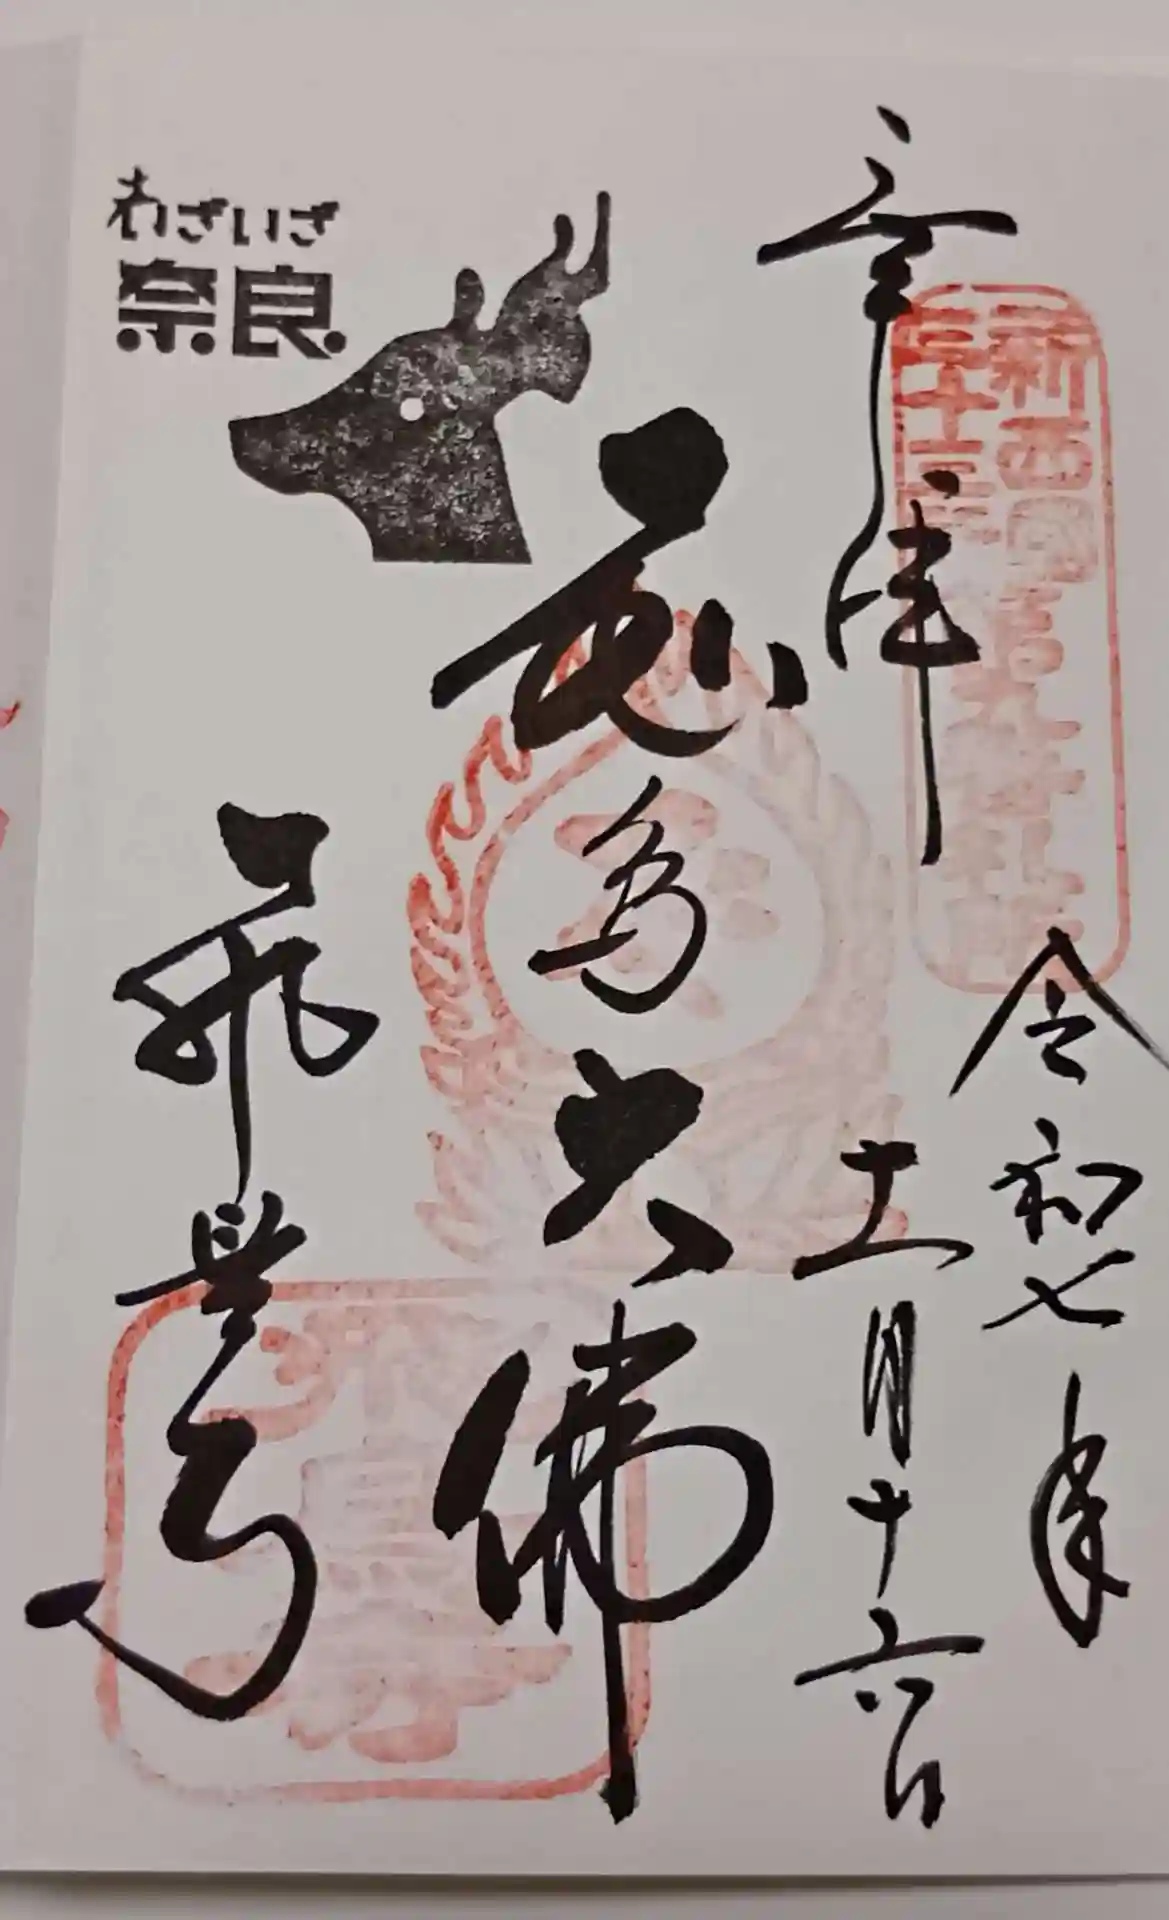 奉拝
新西国
令和七年
十一月十六日
飛鳥大佛
いざいざ
奈良
飛鳥寺